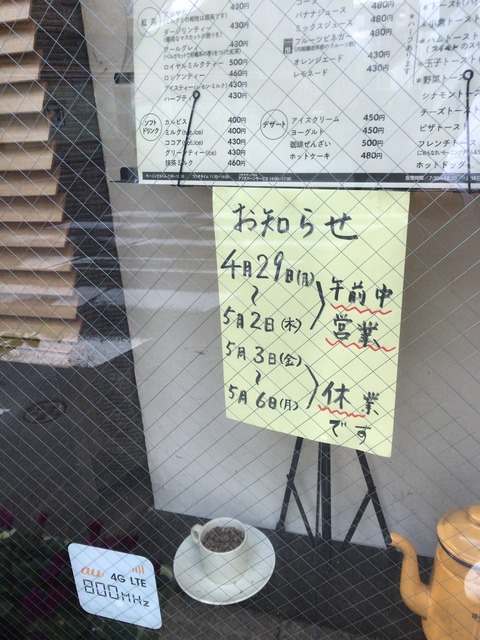 紅茶
430円
ダージリンティー 430円
アールグレイ 430円
ロイヤルミルクティー 500円
ロシアンティー 460円
アイスティー(レモン・ミルク) 430円
ハーブティー 430円
ソフトドリンク
カルピス 400円
ミルク(hot.ice) 400円
ココア(hot.ice) 430円
グリーンティー(ice) 430円
抹茶ミルク 460円
480円
バナナジュース 480円
ミックスジュース 480円
フルーツビネガー
オレンジエード 430円
レモネード 430円
デザート
アイスクリーム 450円
ヨーグルト 450円
珈琲ぜんざい 500円
ホットケーキ 480円
玉子トースト
野菜トースト
シナモントースト
チーズトースト
ピザトースト
フレンチトースト
ホットドッグ
お知らせ
4月29日(月)
〜
5月2日(木)
午前中
営業
5月3日(金)
〜
5月6日(月)
休業
です
au 4G LTE
800MHz